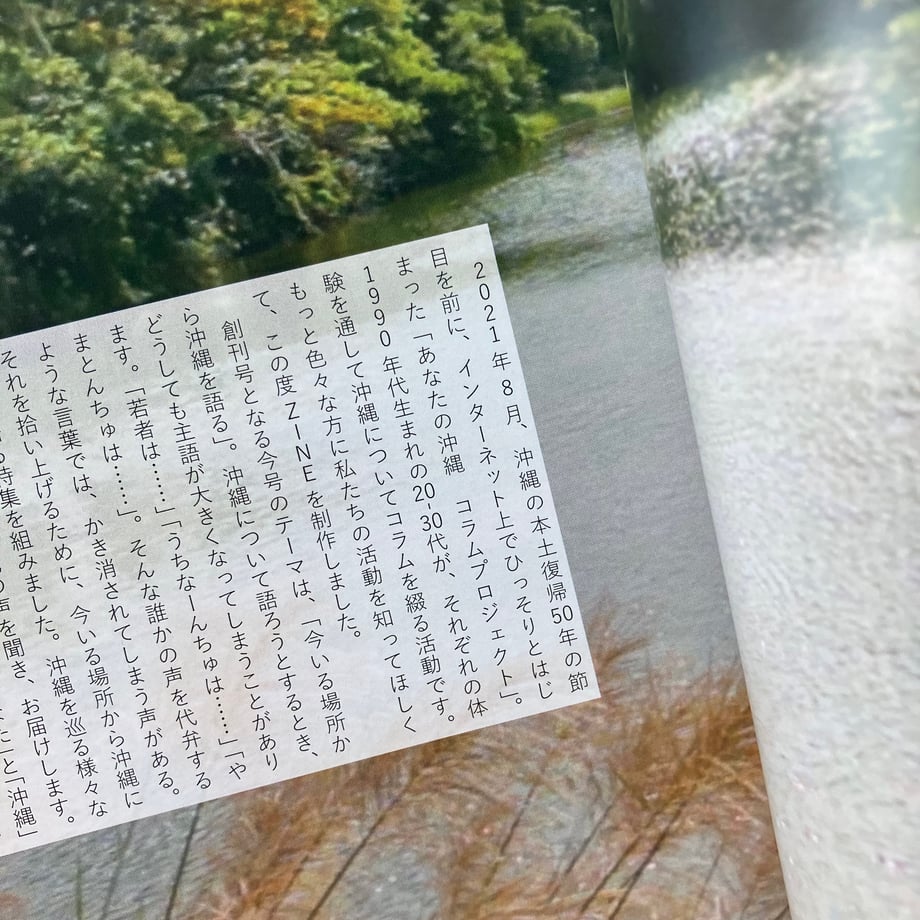 2021年8月、沖縄の本土復帰50年の節
目を前に、インターネット上でひっそりとはじ
まった「あなたの沖縄　コラムプロジェクト」。
1990年代生まれの20-30代が、それぞれの体
験を通して沖縄についてコラムを綴る活動です。
もっと色々な方に私たちの活動を知ってほしく
て、この度ZINEを制作しました。
創刊号となる今号のテーマは、「今いる場所か
ら沖縄を語る」。沖縄について語ろうとするとき、
どうしても主語が大きくなってしまうことがあり
ます。「若者は……」「うちなーんちゅは……」「や
まとんちゅは……」。そんな誰かの声を代弁する
ような言葉では、かき消されてしまう声がある。
それを拾い上げるために、今いる場所から沖縄に
特集を組みました。沖縄を巡る様々な
の声を聞き、お届けします。
と「沖縄」